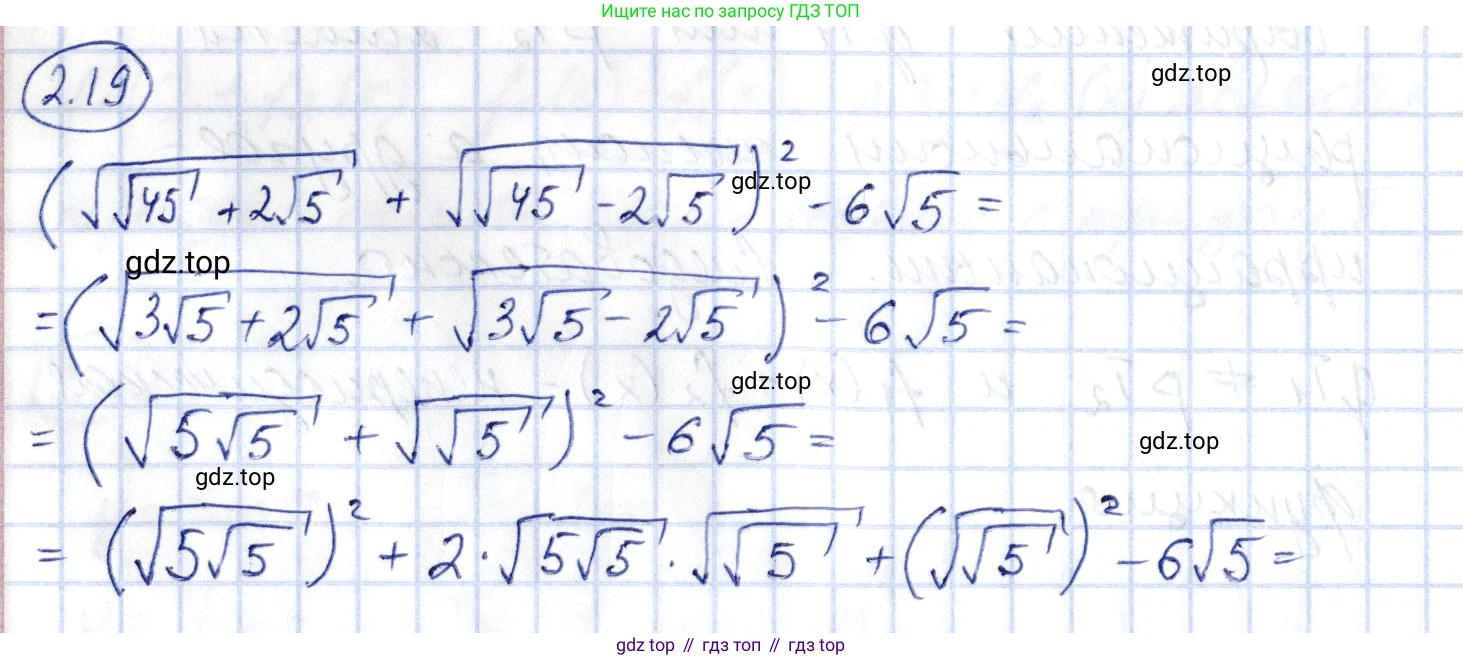 Ищите нас по запросу ГДЗ ТОП
2.19
gdz.top
(√(√45 + 2√5) + √(√45 - 2√5))² - 6√5 =
gdz.top
gdz.top
= (√(3√5 + 2√5) + √(3√5 - 2√5))² - 6√5 =
gdz.top
= (√(5√5) + √(√5))² - 6√5 =
gdz.top
gdz.top
= (√(5√5))² + 2·√(5√5)·√(√5) + (√(√5))² - 6√5 =
gdz top // гдз топ // gdz top